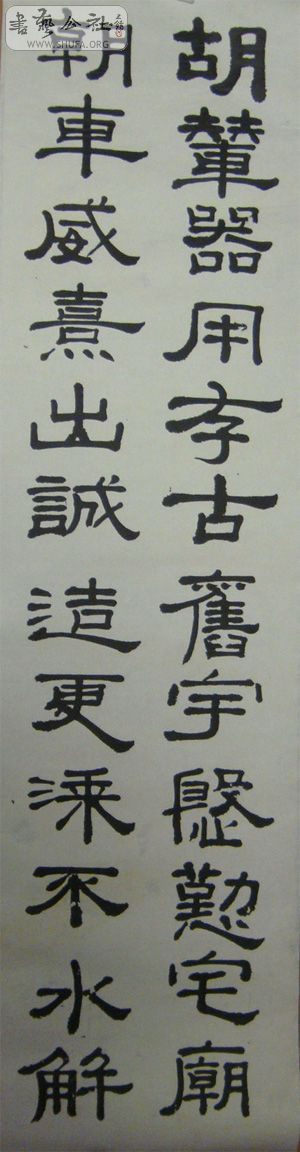 書藝公社
WWW.SHUFA.ORG
胡輦器用存古舊宇慇懃宅廟
朝車威熹出誠造更漆不水解